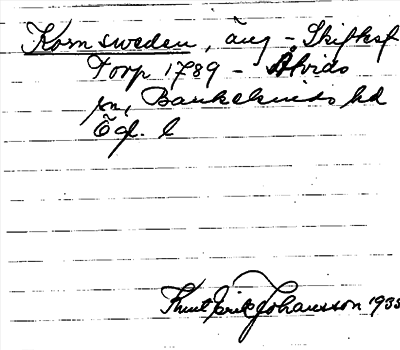 Kornsweden, äng - Skifteskf
Torp 1789 - Åtvids
sn, Bankekinds hd
Ög. l
Knut Erik Johansson 1935